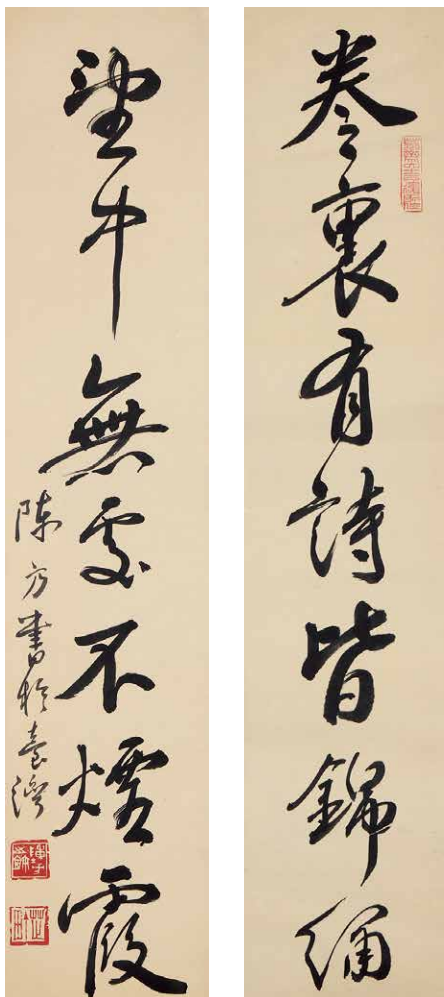 卷裏有詩皆錦繡
望中無處不煙霞
陳方書於臺灣
芷町